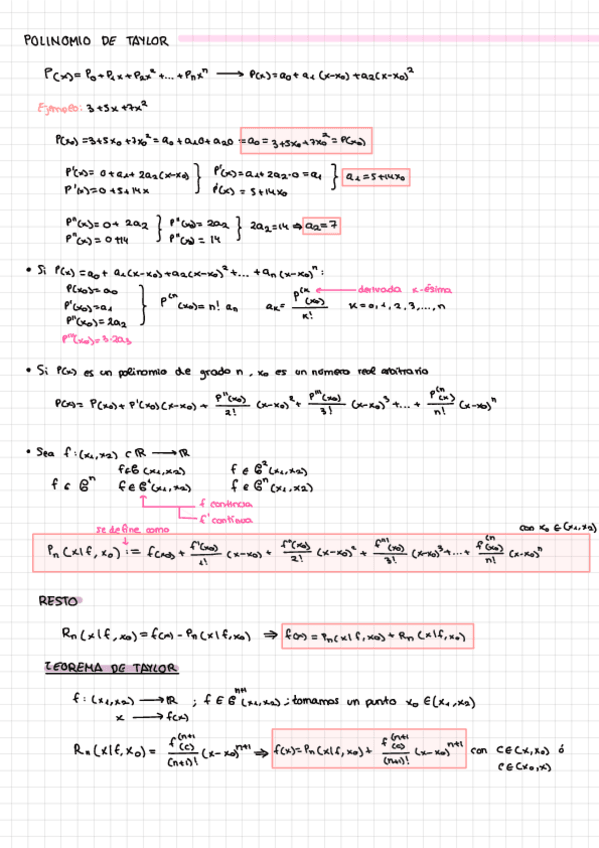 POLINOMIO DE TAYLOR
P(x) = P₀ + P₁x + P₂x² + ... + Pₙxⁿ ⟶ P(x) = a₀ + a₁(x-x₀) + a₂(x-x₀)²
Ejemplo: 3+5x+7x²
P(x₀) = 3+5x₀+7x₀² = a₀ + a₁0 + a₂0 = a₀ = 3+5x₀+7x₀² = P(x₀)
P'(x) = 0 + a₁ + 2a₂(x-x₀) } P'(x) = a₁ + 2a₂·0 = a₁ } a₁ = 5+14x₀
P'(x) = 0+5+14x } P'(x) = 5+14x₀
P''(x) = 0 + 2a₂ } P''(x) = 2a₂ } 2a₂ = 14 ⇒ a₂ = 7
P''(x) = 0+14 } P''(x) = 14
• Si P(x) = a₀ + a₁(x-x₀) + a₂(x-x₀)² + ... + aₙ(x-x₀)ⁿ:
P(x₀) = a₀
P'(x₀) = a₁ } P⁽ⁿ(x₀) = n! aₙ aₖ = P⁽ᵏ(x₀)/k! ← derivada k-ésima K = 0, 1, 2, 3, ..., n
P''(x₀) = 2a₂
P'''(x₀) = 3·2a₃
• Si P(x) es un polinomio de grado n, x₀ es un número real arbitrario
P(x) = P(x₀) + P'(x₀)(x-x₀) + P''(x₀)/2! (x-x₀)² + P'''(x₀)/3! (x-x₀)³ + ... + P⁽ⁿ(x)/n! (x-x₀)ⁿ
• Sea f: (x₁,x₂) ⊂ ℝ ⟶ ℝ
f ∈ 𝒞(x₁,x₂) f ∈ 𝒞²(x₁,x₂)
f ∈ 𝒞ⁿ f ∈ 𝒞¹(x₁,x₂) f ∈ 𝒞ⁿ(x₁,x₂)
f continua
f' continua
se define como con x₀ ∈ (x₁,x₂)
Pₙ(x|f, x₀) := f(x₀) + f'(x₀)/1! (x-x₀) + f''(x₀)/2! (x-x₀)² + f'''(x₀)/3! (x-x₀)³ + ... + f⁽ⁿ(x₀)/n! (x-x₀)ⁿ
RESTO
Rₙ(x|f, x₀) = f(x) - Pₙ(x|f, x₀) ⇒ f(x) = Pₙ(x|f, x₀) + Rₙ(x|f, x₀)
TEOREMA DE TAYLOR
f: (x₁,x₂) ⟶ ℝ ; f ∈ 𝒞ⁿ⁺¹(x₁,x₂) ; tomamos un punto x₀ ∈ (x₁,x₂)
x ⟶ f(x)
Rₙ(x|f, x₀) = f⁽ⁿ⁺¹(c)/(n+1)! (x-x₀)ⁿ⁺¹ ⇒ f(x) = Pₙ(x|f, x₀) + f⁽ⁿ⁺¹(c)/(n+1)! (x-x₀)ⁿ⁺¹ con c ∈ (x,x₀) ó
c ∈ (x₀,x)